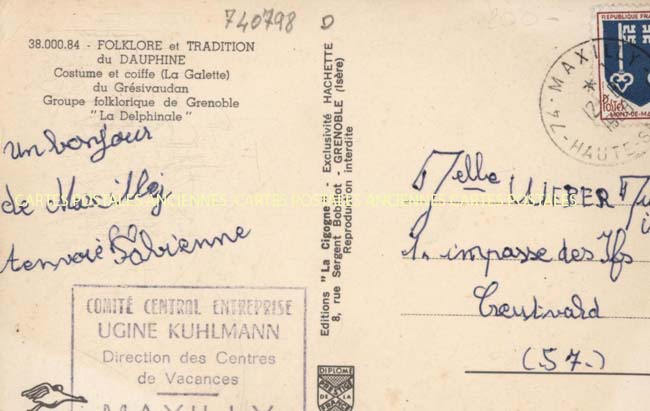 740798 D
38.000.84 - FOLKLORE et TRADITION
du DAUPHINE
Costume et coiffe (La Galette)
du Grésivaudan
Groupe folklorique de Grenoble
"La Delphinale"
un bonjour
de Maxilly
tenvoie Fabienne
CARTES POSTALES ANCIENNES CARTES POSTALES ANCIENNES CARTES POSTALES ANCIENNES
COMITÉ CENTRAL ENTREPRISE
UGINE KUHLMANN
Direction des Centres
de Vacances
MAXILLY
Editions "La Cigogne" - Exclusivité HACHETTE
8, rue Sergent Bobillot - GRENOBLE (Isère)
Reproduction interdite
DIPLOME
PRESTIGE
DE LA
FRANCE
REPUBLIQUE FRA
MONT-DE-MA
74-MAXILLY
HAUTE-S
Melle WIEBER
1. impasse des Ifs
(57.)